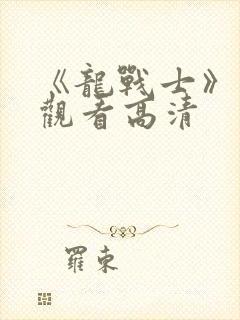 《龍戰士》
觀看高清
羅東